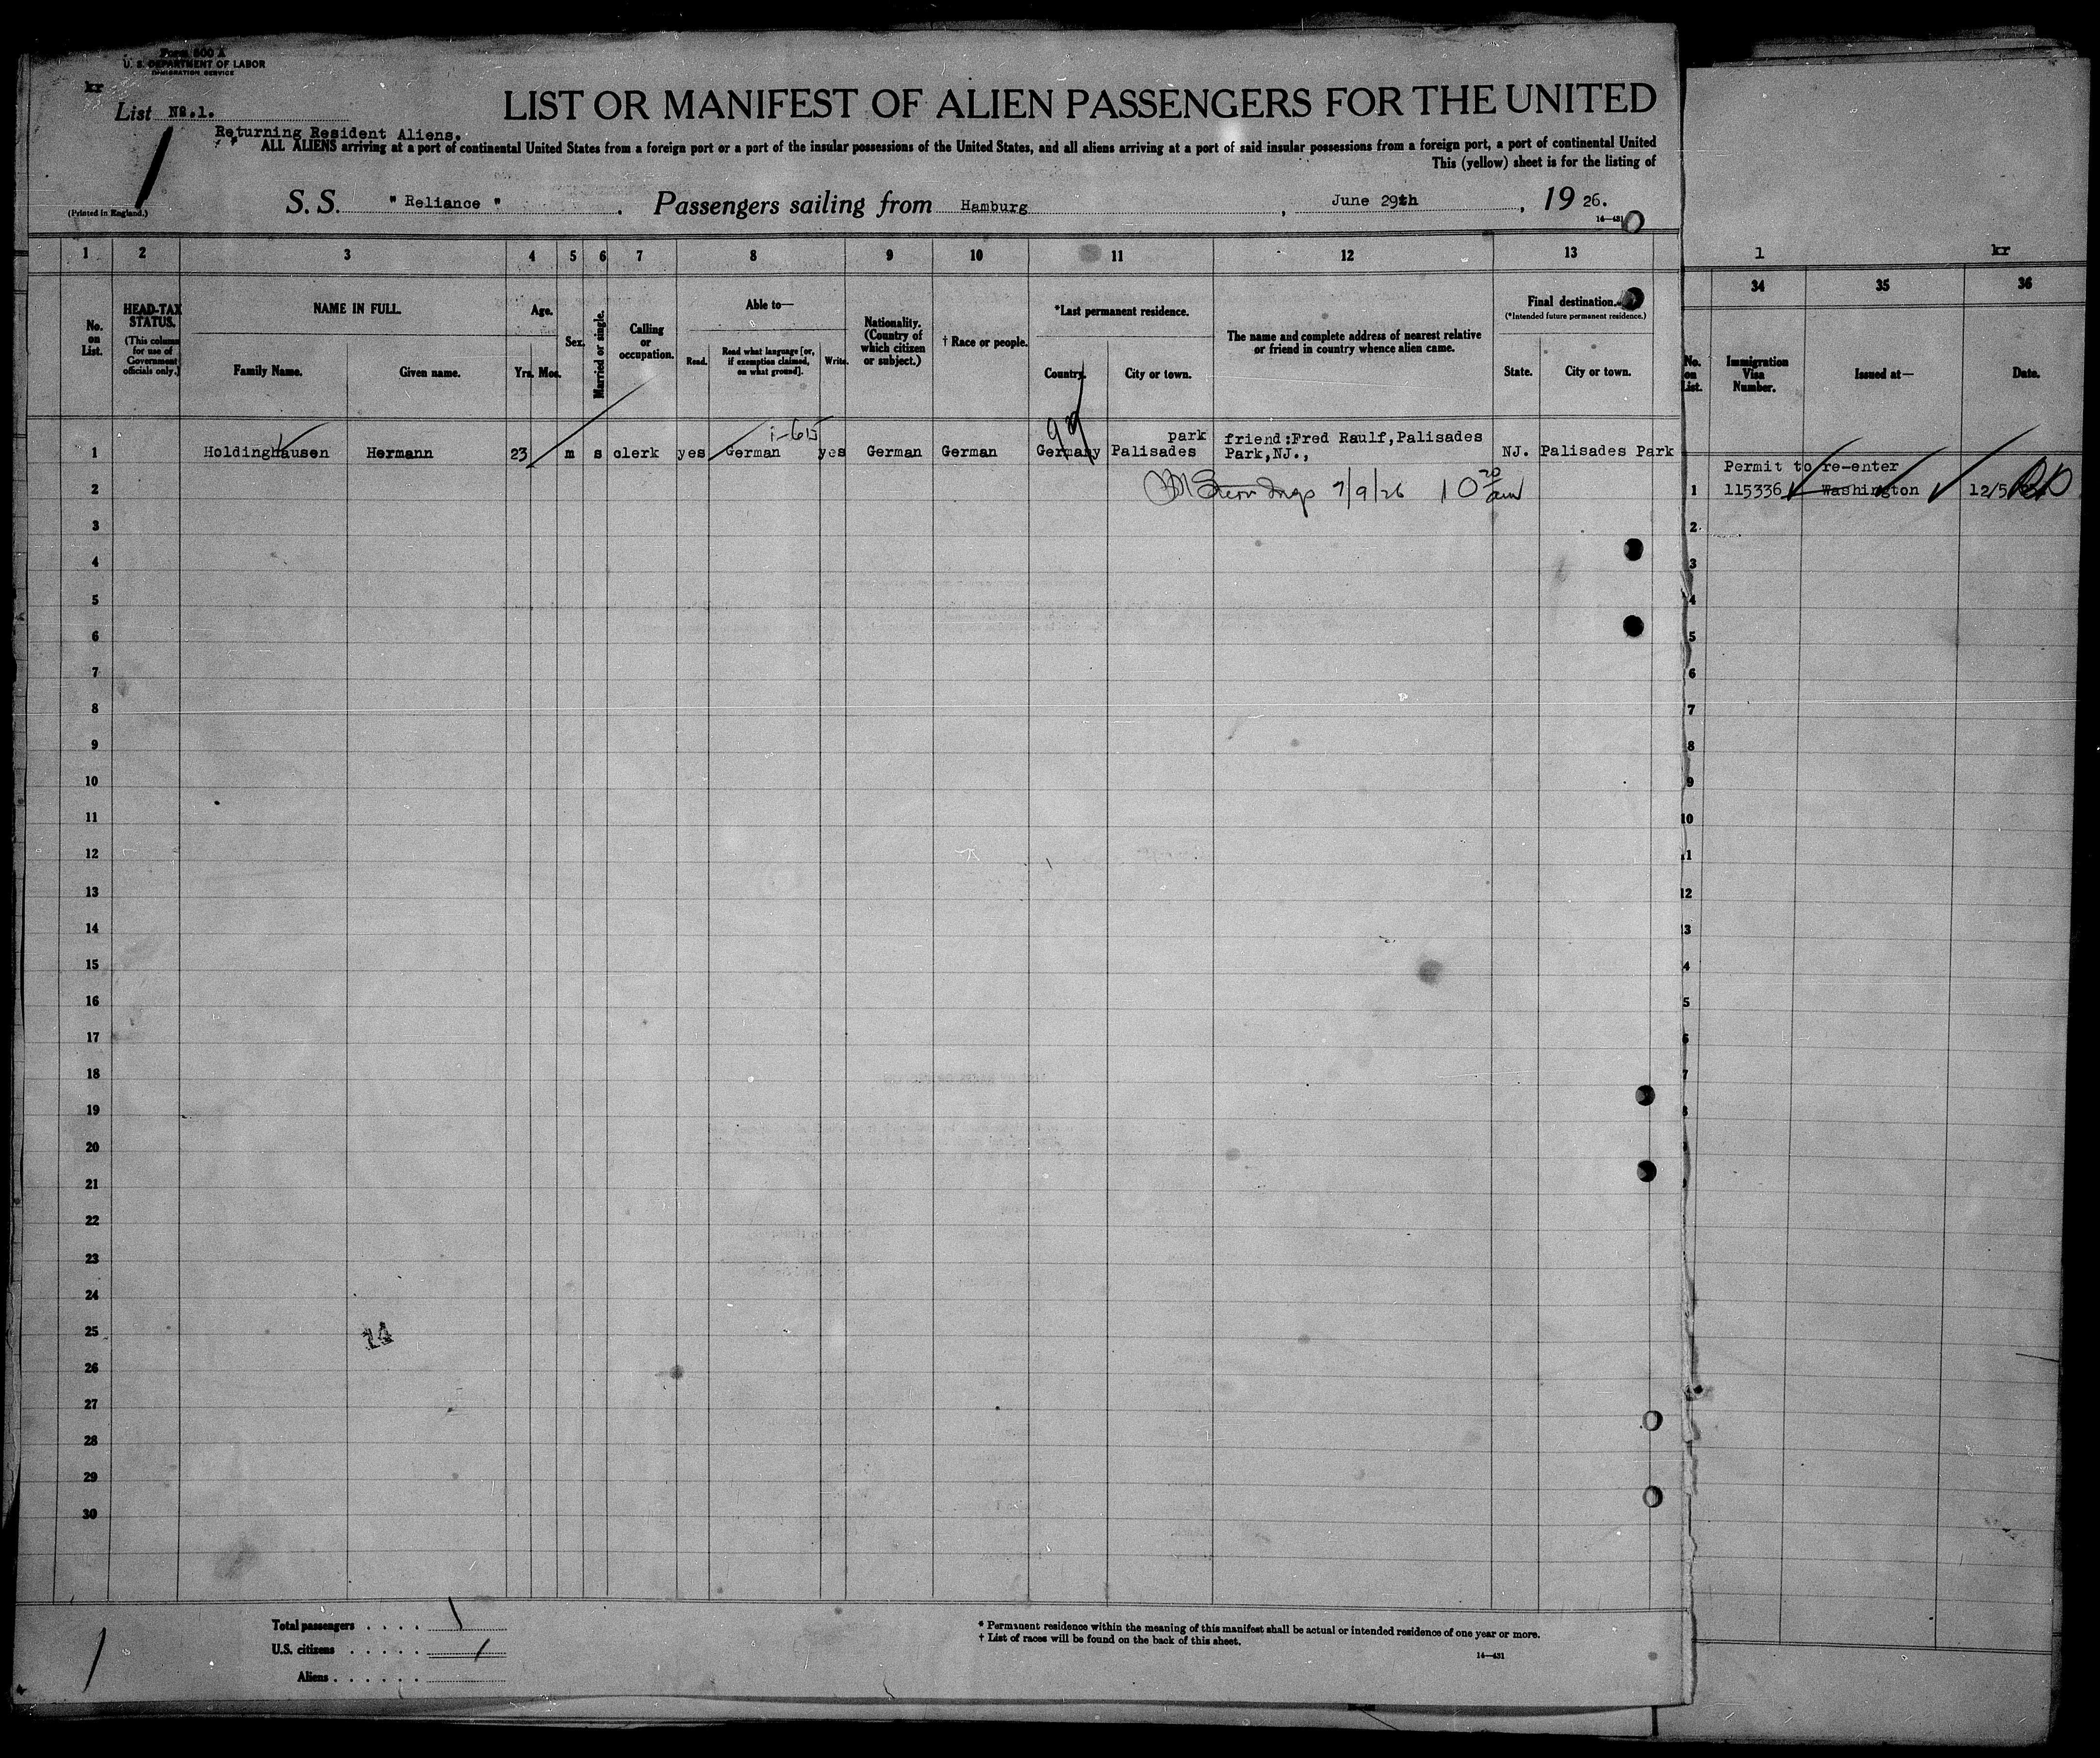 Form 500 A
U. S. DEPARTMENT OF LABOR
IMMIGRATION SERVICE
kr
List No.1.
LIST OR MANIFEST OF ALIEN PASSENGERS FOR THE UNITED
Returning Resident Aliens.
ALL ALIENS arriving at a port of continental United States from a foreign port or a port of the insular possessions of the United States, and all aliens arriving at a port of said insular possessions from a foreign port, a port of continental United
This (yellow) sheet is for the listing of
(Printed in England.)
S. S. " Reliance " . Passengers sailing from Hamburg , June 29th , 19 26.
14—431
1 2 3 4 5 6 7 8 9 10 11 12 13
No. on List.
HEAD-TAX STATUS.
(This column for use of Government officials only.)
NAME IN FULL.
Family Name. Given name.
Age.
Yrs. Mos.
Sex.
Married or single.
Calling or occupation.
Able to—
Read. Read what language [or, if exemption claimed, on what ground]. Write.
Nationality. (Country of which citizen or subject.)
† Race or people.
*Last permanent residence.
Country. City or town.
The name and complete address of nearest relative or friend in country whence alien came.
Final destination.
(*Intended future permanent residence.)
State. City or town.
99
park friend:Fred Raulf,Palisades
1 Holdinghausen Hermann 23 m s clerk yes German yes German German Germany Palisades Park,NJ., NJ. Palisades Park
2 7/9/26 10 20 am
3
4
5
6
7
8
9
10
11
12
13
14
15
16
17
18
19
20
21
22
23
24
25
14
26
27
28
29
30
Total passengers . . . . 1
U.S. citizens . . . . .
Aliens . . . . . .
* Permanent residence within the meaning of this manifest shall be actual or intended residence of one year or more.
† List of races will be found on the back of this sheet.
14—431
1 kr
34 35 36
No. on List.
Immigration Visa Number.
Issued at—
Date.
Permit to re-enter
1 115336 Washington 12/5
2
3
4
5
6
7
8
9
10
11
12
13
4
5
6
7
8